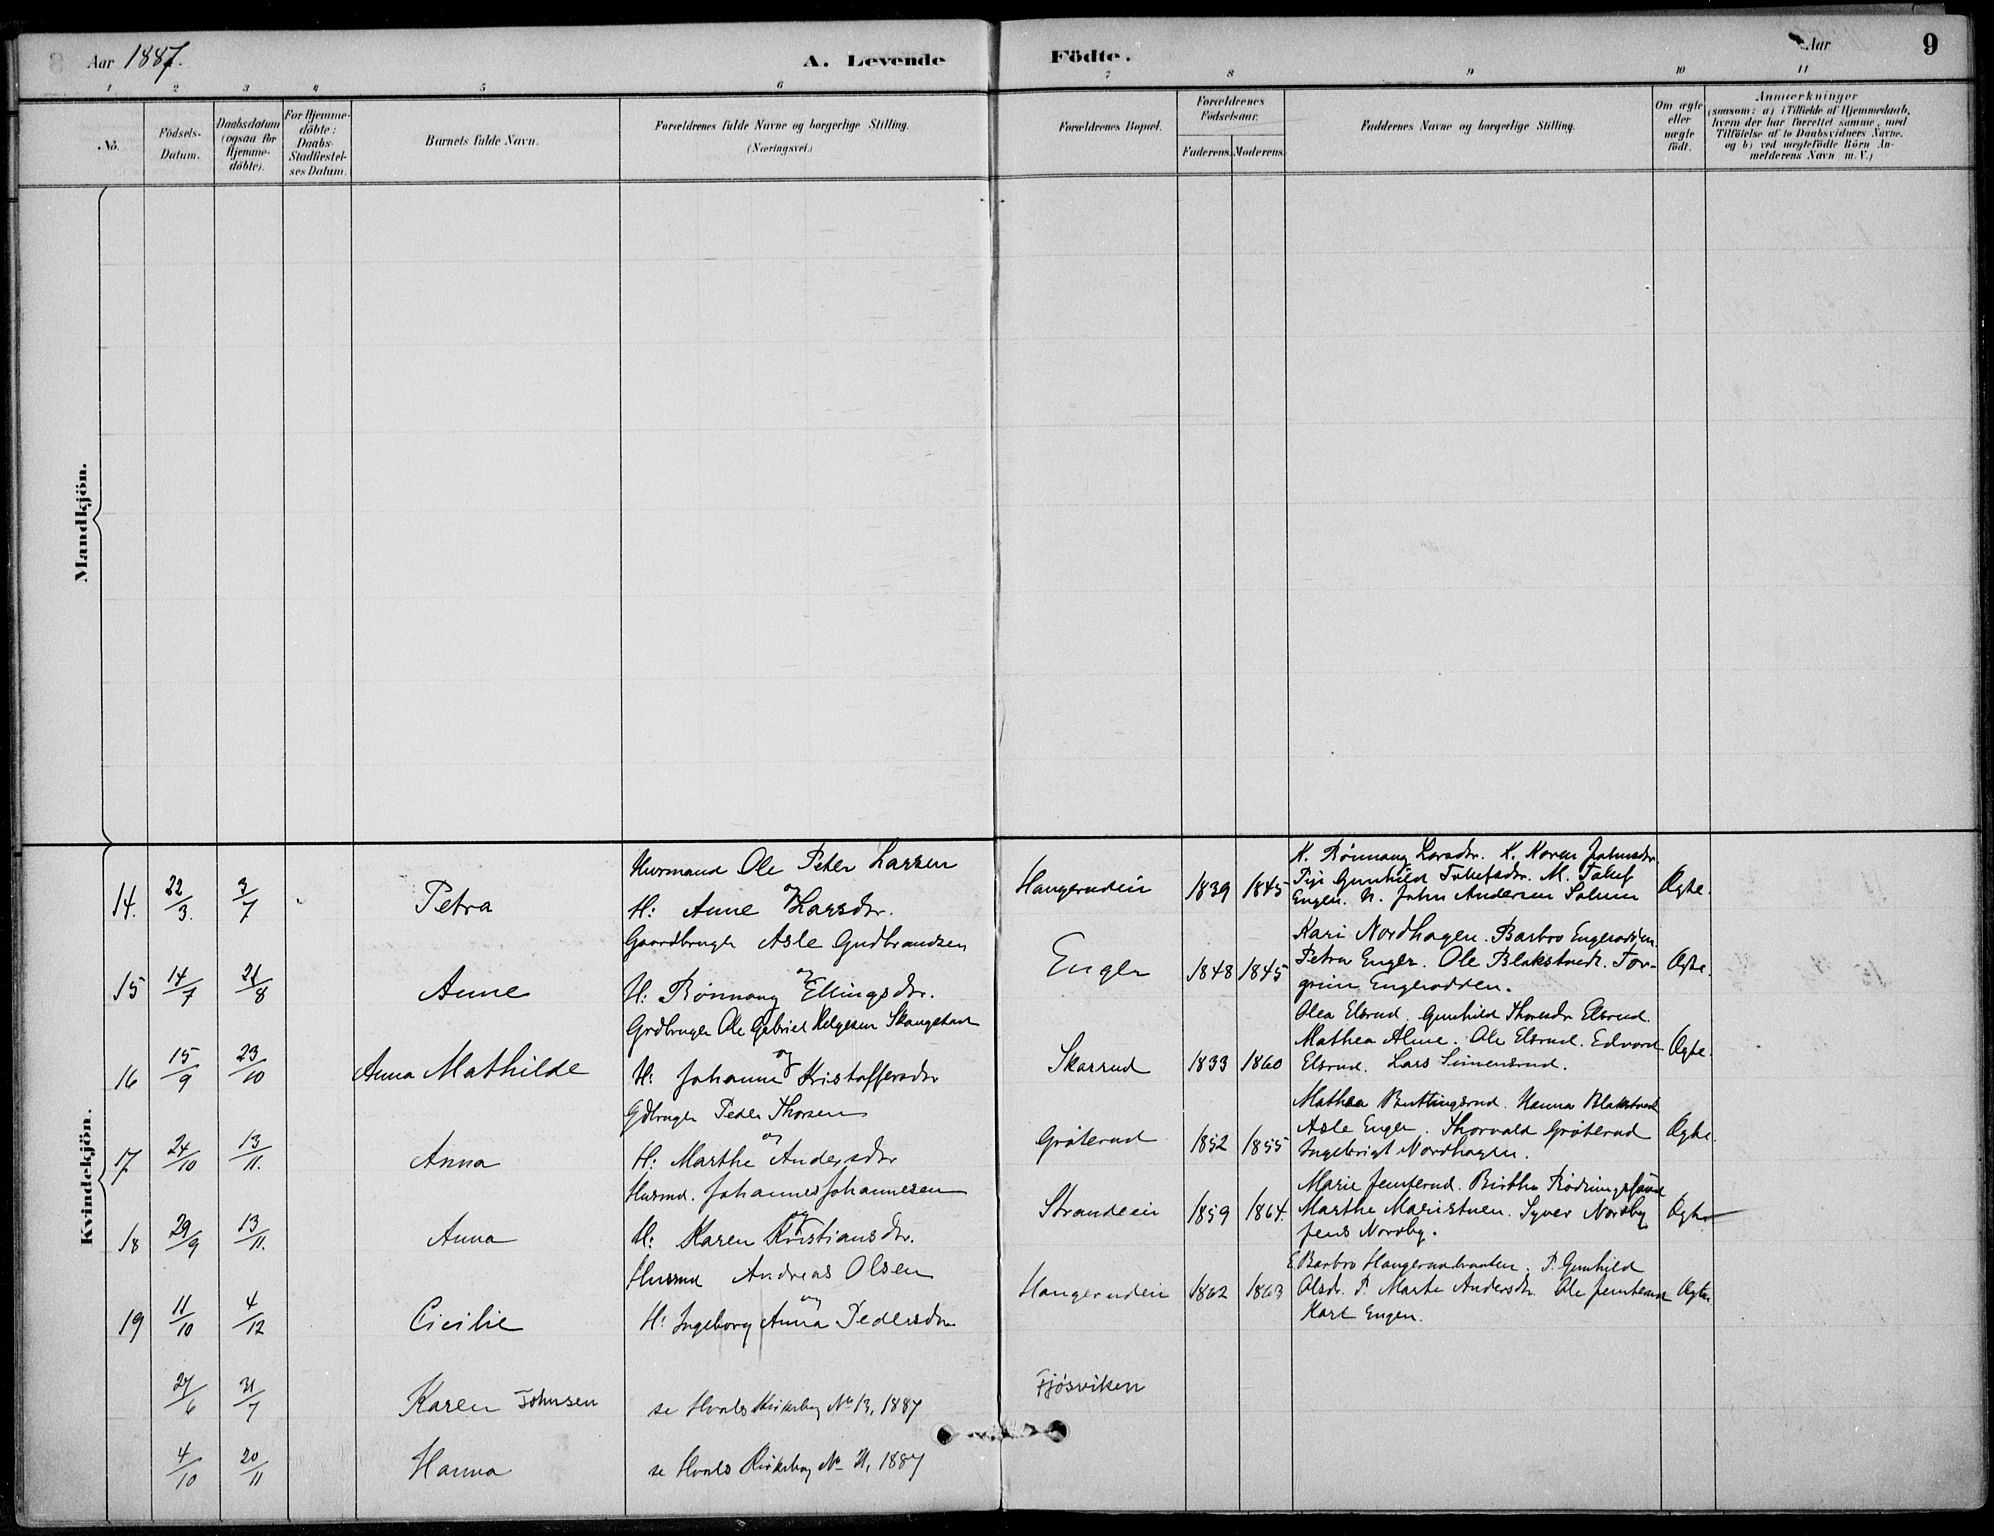 Aar 1887.
A. Levende Födte.
Aar
9
1 2 3 4 5 6 7 8 9 10 11
No.
Födsels-
Datum.
Daabsdatum
(ogsaa for
Hjemme-
döbte).
For Hjemme-
döbte:
Daabs-
Stadfæstel-
ses Datum.
Barnets fulde Navn.
Forældrenes fulde Navne og borgerlige Stilling.
(Næringsvei.)
Forældrenes Bopæl.
Forældrenes
Födselsaar.
Faderens. Moderens.
Faddernes Navne og borgerlige Stilling.
Om ægte
eller
uægte
födt.
Anmærkninger
(saasom: a) i Tilfælde af Hjemmedaab,
hvem der har forrettet samme, med
Tilföielse af to Daabsvidners Navne.
og b) ved uægtefödte Börn An-
melderens Navn m. V.)
Mandkjön.
Kvindekjön.
14. 22/3. 3/7 Petra
Husmand Ole Peter Larsen
og
H: Anne Larsdtr.
Haugerudein 1839 1845
K. Rönnaug Larsdtr. K. Karen Johnsdtr
Pige Gunhild Tolefsdtr. M. Tolef
Engen. N. John Andersen Solum
Ægte.
15 14/7 21/8 Anne
Gaardbruger Asle Gudbrandsen
og
H: Rönnaug Ellingsdtr.
Enger 1848 1845
Kari Nordhagen. Barbro Engerodden
Petra Enger. Ole Blakstvedt. Tor-
grim Engerodden.
Ægte.
16 15/9 23/10 Anna Mathilde
Grdbruger Ole Gabriel Helgesen Skaugstad
og
H: Johanne Kristoffersdtr
Skarrud 1833 1860
Olea Elsrud. Gunhild Thoresdtr Elsrud.
Mathea Alme. Ole Elsrud. Edvard
Elsrud. Lars Simensrud.
Ægte.
17 24/10 13/11. Anna
Gdbruger Peder Thorsen
og
H: Marthe Andersdtr
Gröterud 1852 1855
Mathea Buttingsrud. Hanna Blakstvedt
Asle Enger. Thorvald Gröterud
Ingebrigt Nordhagen.
Ægte.
18 29/9 13/11. Anna
Husmd. Johannes Johannesen
og
H: Karen Kristiansdtr.
Strandein 1859 1864.
Marie Jensterud. Birthe
Marthe Maristuen. Syver Nordby
Jens Nordby.
Ægte
19 11/10 4/12 Cicilie
Husmd Andreas Olsen
og
H: Ingeborg Anna Pedersdtr
Haugerudein 1862 1863
E. Barbro Haugerudbraaten. P. Gunhild
Olsdtr. P. Marte Andersdtr. Ole Jensterud
Karl Engen.
Ægte
27/6 31/7 Karen Johnsen se Hvals Kirkebog No 13, 1887 Fjösviken
4/10 20/11 Hanna se Hvals Kirkebog No 21, 1887